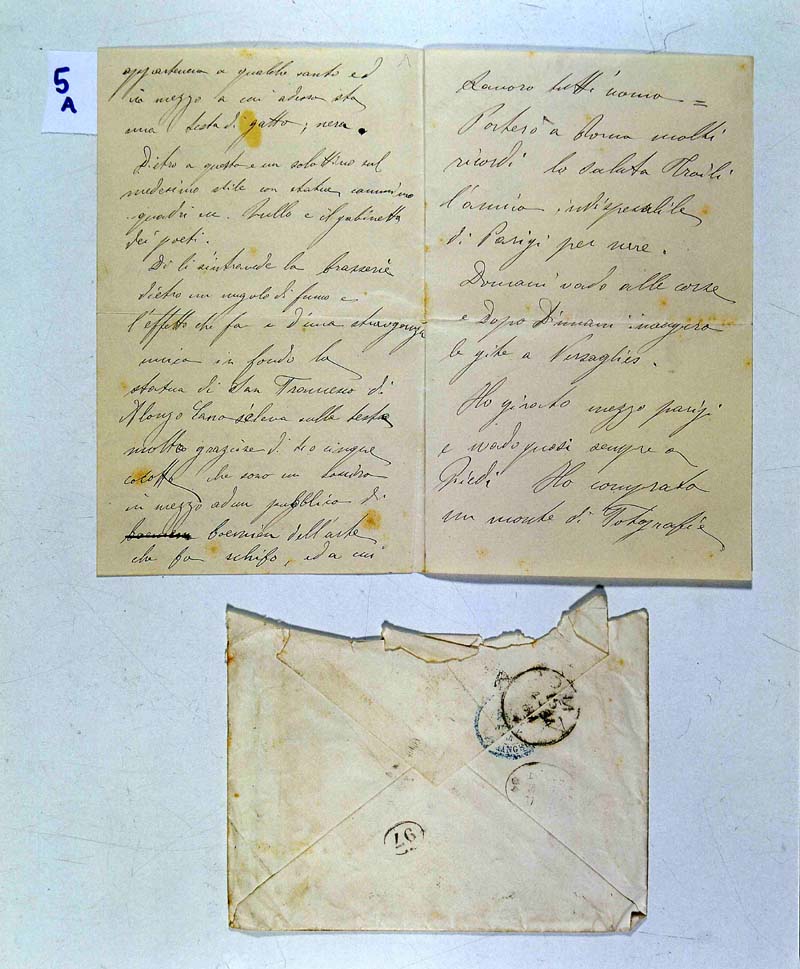 5
A
apparteneva a qualche santo ed
in mezzo a cui adesso sta
una testa di gatto; nera.
Dietro a questo e un salottino sul
medesimo stile con statue cammino
quadri ec. Sullo e il gabinetto
dei poeti.
Di li s'intravede la brasserie
dietro un nugolo di fumo e
l'effetto che fa e d'una stravaganza
unica in fondo la
statua di San Francesco di
Alonzo Cano seleva sulle teste
molto graziose di tre o cinque
cocotte, che sono un
in mezzo ad un pubblico di
boemien dell'arte
che fa schifo, ed a cui
Lavoro tutti uomo =
Porterò a Roma molti
ricordi lo saluta
l'amico indispensabile
di Parigi per me.
Domani vado alle corse
e Dopo Dimani inauguro
le gite a Versaglies.
Ho girato mezzo parigi
e vado quasi sempre a
Piedi Ho comprato
un monte di Fotografie
ROMA
97